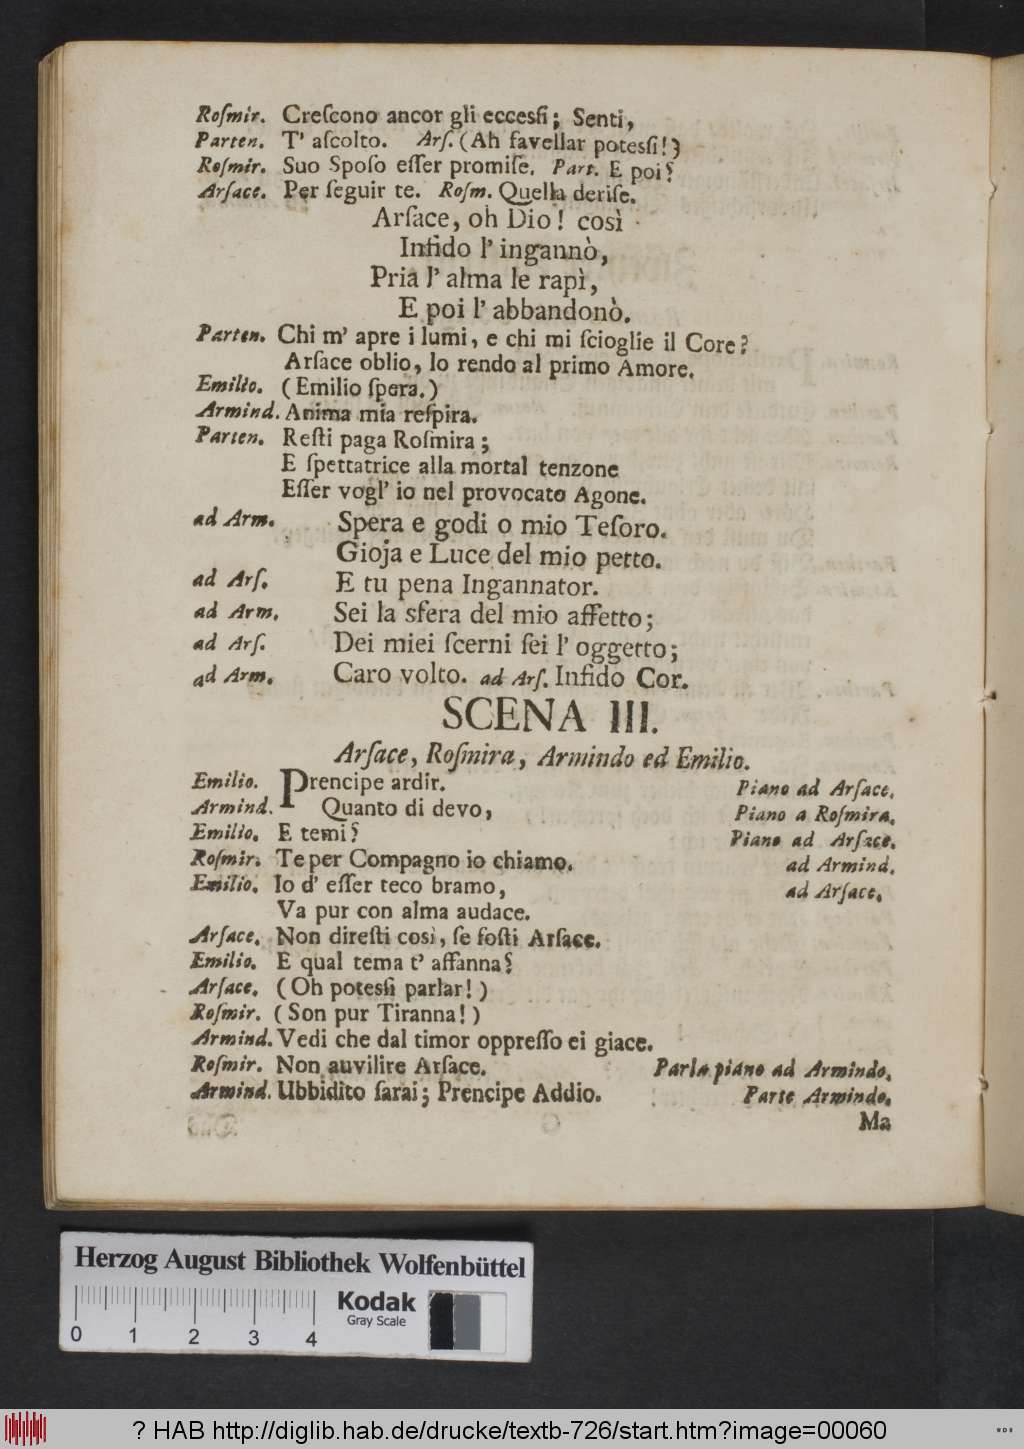 Roſmir. Creſcono ancor gli eccesſi; Senti,
Parten. T' aſcolto. Arſ. (Ah favellar potesſi!)
Roſmir. Suo Spoſo eſſer promiſe. Part. E poi?
Arſace. Per ſeguir te. Roſm. Quella deriſe.
Arſace, oh Dio! così
Infido l' ingannò,
Pria l' alma le rapì,
E poi l' abbandonò.
Parten. Chi m' apre i lumi, e chi mi ſcioglie il Core?
Arſace oblio, lo rendo al primo Amore.
Emilio. (Emilio ſpera.)
Armind. Anima mia reſpira.
Parten. Reſti paga Roſmira;
E ſpettatrice alla mortal tenzone
Eſſer vogl' io nel provocato Agone.
ad Arm. Spera e godi o mio Teſoro.
Gioja e Luce del mio petto.
ad Arſ. E tu pena Ingannator.
ad Arm. Sei la sfera del mio affetto;
ad Arſ. Dei miei ſcerni ſei l' oggetto;
ad Arm. Caro volto. ad Arſ. Infido Cor.
SCENA III.
Arſace, Roſmira, Armindo ed Emilio.
Emilio. Prencipe ardir. Piano ad Arſace.
Armind. Quanto di devo, Piano a Roſmira.
Emilio. E temi? Piano ad Arſace.
Roſmir. Te per Compagno io chiamo. ad Armind.
Emilio. Io d' eſſer teco bramo, ad Arſace.
Va pur con alma audace.
Arſace. Non direſti così, ſe foſti Arſace.
Emilio. E qual tema t' affanna?
Arſace. (Oh potesſi parlar!)
Roſmir. (Son pur Tiranna!)
Armind. Vedi che dal timor oppreſſo ei giace.
Roſmir. Non auvilire Arſace. Parla piano ad Armindo.
Armind. Ubbidito ſarai; Prencipe Addio. Parte Armindo.
Ma
Herzog August Bibliothek Wolfenbüttel
Kodak
Gray Scale
0 1 2 3 4
? HAB http://diglib.hab.de/drucke/textb-726/start.htm?image=00060